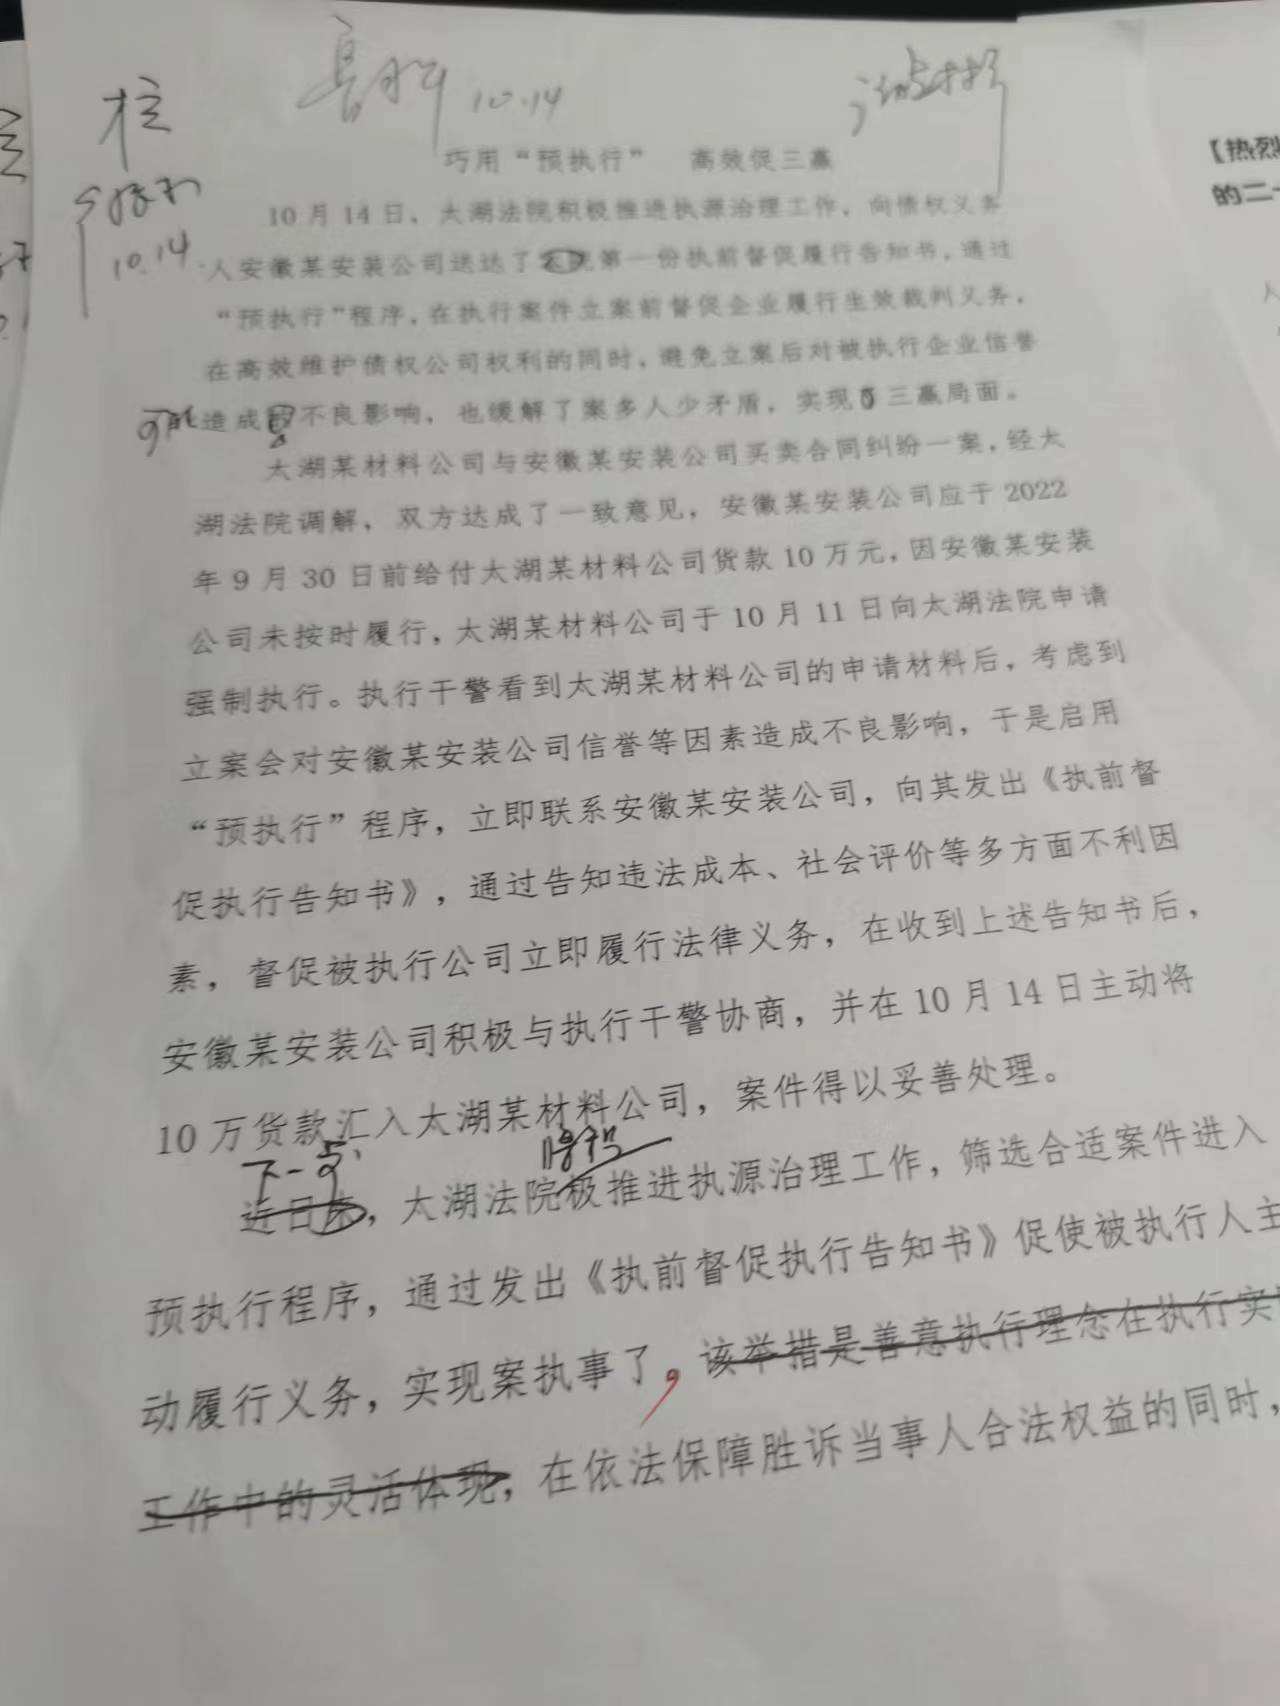 核
10.14
10.14
巧用“预执行” 高效促三赢
10月14日，太湖法院积极推进执源治理工作，向债权义务
人安徽某安装公司送达了第一份执前督促履行告知书，通过
“预执行”程序，在执行案件立案前督促企业履行生效裁判义务，
在高效维护债权公司权利的同时，避免立案后对被执行企业信誉
可能造成不良影响，也缓解了案多人少矛盾，实现三赢局面。
太湖某材料公司与安徽某安装公司买卖合同纠纷一案，经太
湖法院调解，双方达成了一致意见，安徽某安装公司应于2022
年9月30日前给付太湖某材料公司货款10万元，因安徽某安装
公司未按时履行，太湖某材料公司于10月11日向太湖法院申请
强制执行。执行干警看到太湖某材料公司的申请材料后，考虑到
立案会对安徽某安装公司信誉等因素造成不良影响，于是启用
“预执行”程序，立即联系安徽某安装公司，向其发出《执前督
促执行告知书》，通过告知违法成本、社会评价等多方面不利因
素，督促被执行公司立即履行法律义务，在收到上述告知书后，
安徽某安装公司积极与执行干警协商，并在10月14日主动将
10万货款汇入太湖某材料公司，案件得以妥善处理。
下一步
近日来，太湖法院极推进执源治理工作，筛选合适案件进入
预执行程序，通过发出《执前督促执行告知书》促使被执行人主
动履行义务，实现案执事了，该举措是善意执行理念在执行实
工作中的灵活体现，在依法保障胜诉当事人合法权益的同时，
【热烈
的二十
人